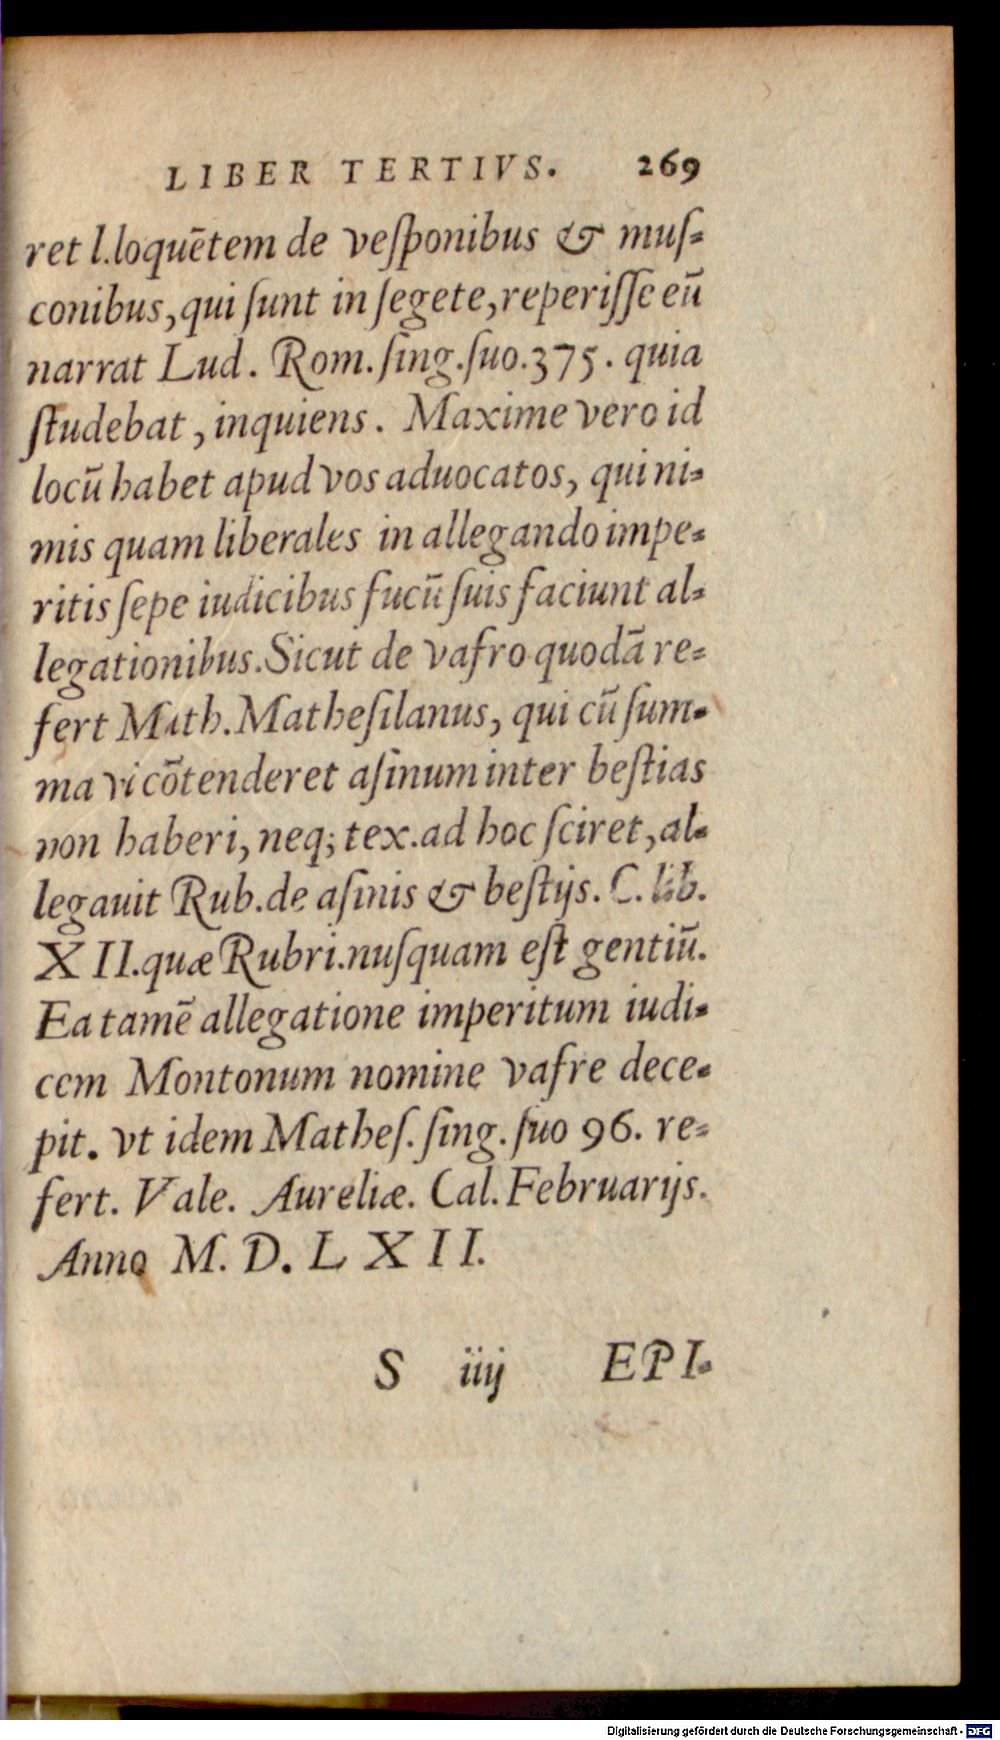 LIBER TERTIVS. 269
ret l.loquẽtem de veſponibus & muſ-
conibus, qui ſunt in ſegete, reperiſſe eũ
narrat Lud. Rom. ſing. ſuo. 375. quia
ſtudebat, inquiens. Maxime vero id
locũ habet apud vos aduocatos, qui ni-
mis quam liberales in allegando impe-
ritis ſepe iudicibus fucũ ſuis faciunt al-
legationibus. Sicut de vafro quodã re-
fert Math. Matheſilanus, qui cũ ſum-
ma vi cõtenderet aſinum inter beſtias
non haberi, neq; tex. ad hoc ſciret, al-
legauit Rub. de aſinis & beſtijs. C. lib.
XII. quæ Rubri. nuſquam eſt gentiũ.
Ea tamẽ allegatione imperitum iudi-
cem Montonum nomine vafre dece-
pit. vt idem Matheſ. ſing. ſuo 96. re-
fert. Vale. Aureliæ. Cal. Februarijs.
Anno M. D. LXII.
S iiij EPI-
Digitalisierung gefördert durch die Deutsche Forschungsgemeinschaft - DFG